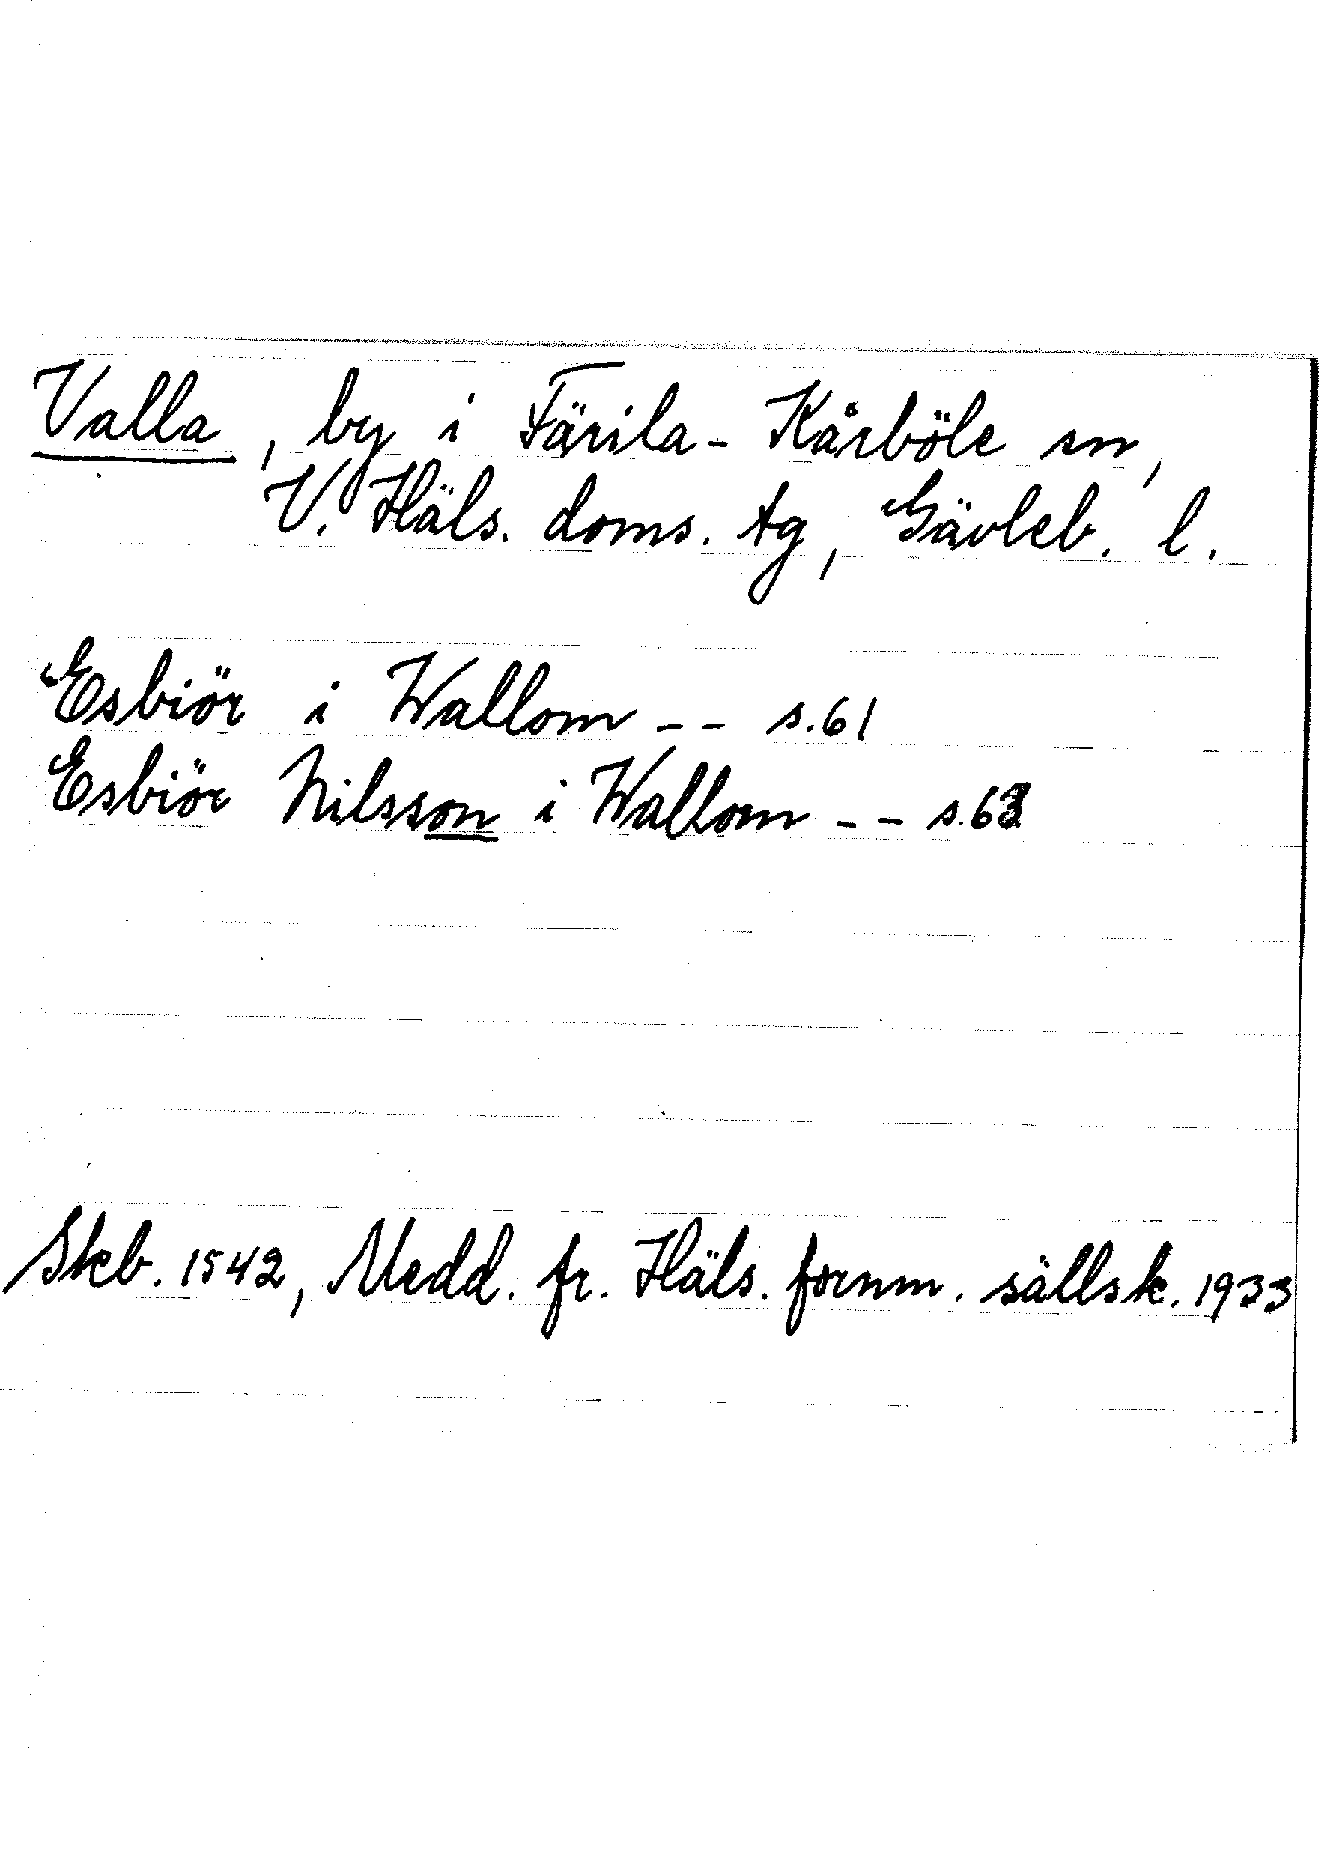 Valla, by i Färila-Kårböle sn,
V. Häls. doms. tg, Gävleb. l.
Esbiör i Wallom -- s.61
Esbiör Nilsson i Wallom -- s.63
Skb. 1542, Medd. fr. Häls. fornm. sällsk. 1933